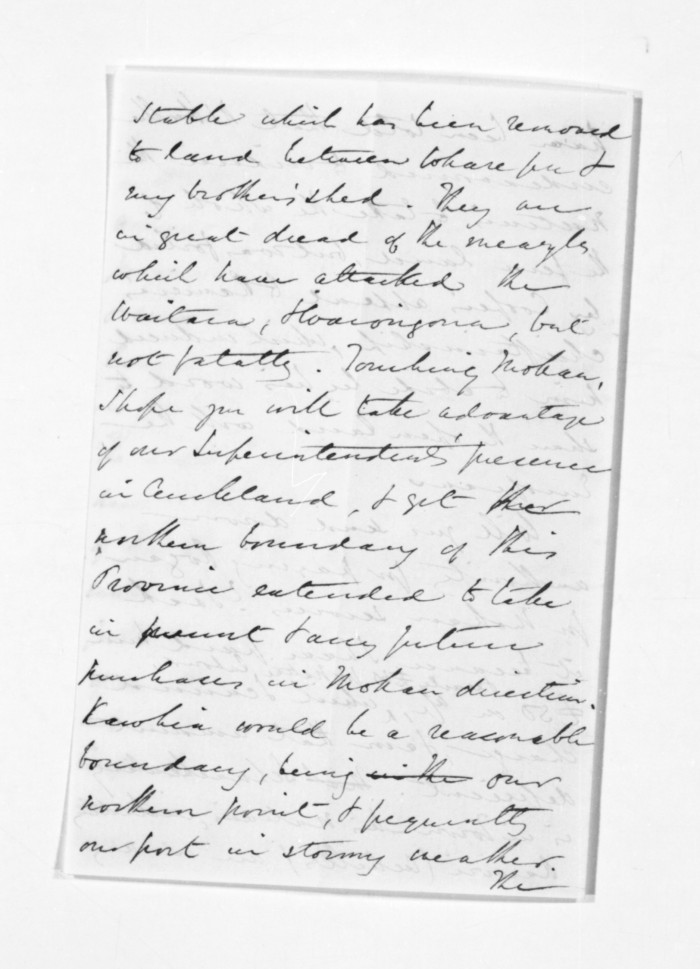 Stable which has been removed
to land between Whare pu &
my brother's shed. They are
in great dread of the measles
which have attacked the
Waitara, & Waiongona, but
not fatally. Touching Mokau,
I hope you will take advantage
of our Superintendent's presence
in Auckland, & get the
northern boundary of this
Province extended to take
in present & any future
purchases in Mokau direction.
Kawhia would be a reasonable
boundary, being in the our
northern point, & frequently
our port in stormy weather.
The